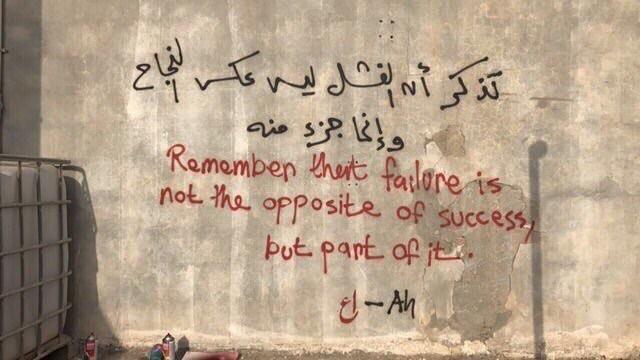 تذكر أن الفشل ليس عكس النجاح
وإنما جزء منه
Remember that failure is
not the opposite of success,
but part of it.
اع - Ah